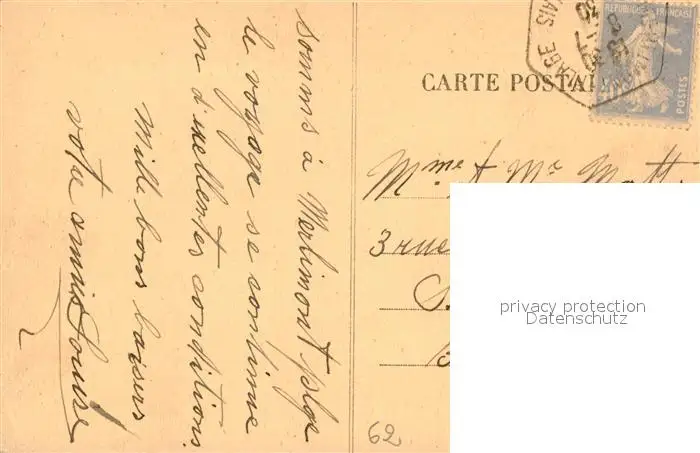 somms à Merlimont plge
le voyage se continue
en d'exellentes conditions
Mill bons baisers
votre amie Louise
CARTE POSTALE
RÉPUBLIQUE FRANÇAISE
POSTES
Mme & Mr
3 rue
62
privacy protection
Datenschutz